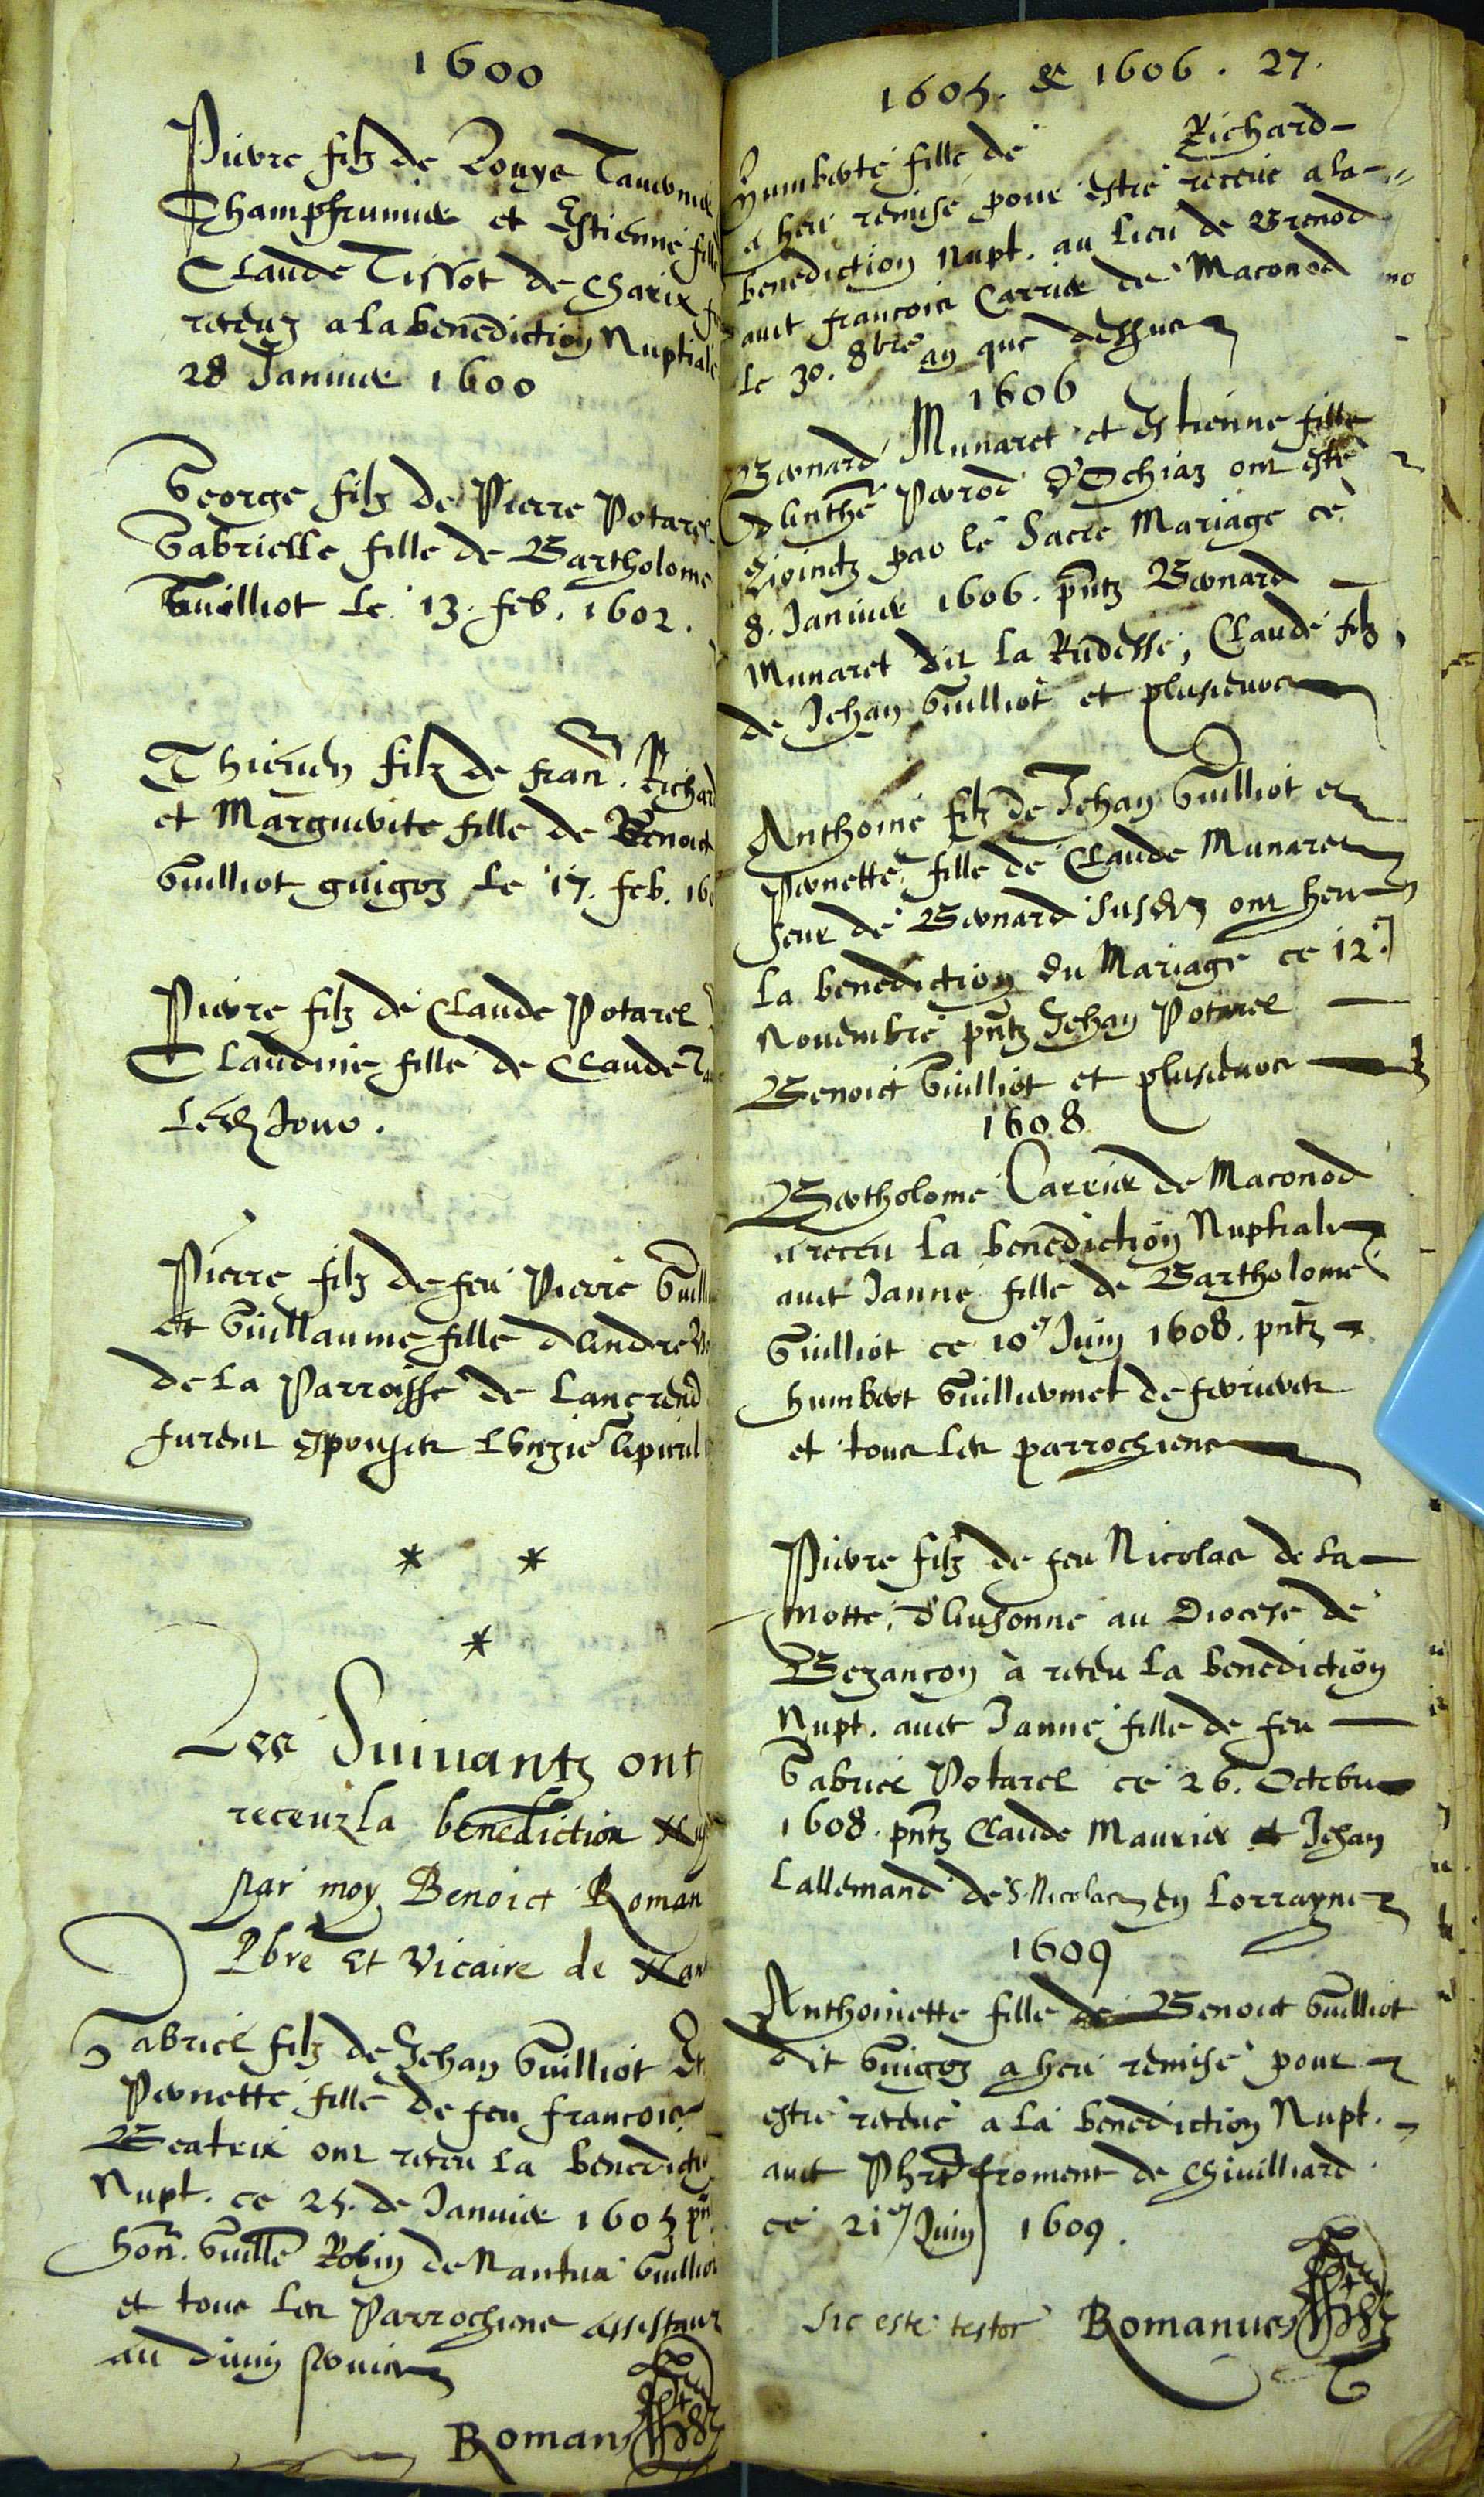 1600
Pierre filz de Louys Tavernier
Champfrumier et Estienne fille
Claude Tissot de Charix
receuz a la benediction Nuptiale
28 Janvier 1600
George filz de Pierre Potarel
Gabrielle fille de Bartholome
Guilliot le 13. feb. 1602.
Thieven filz de fran. Richard
et Marguerite fille de Benoict
Guilliot guigoz le 17. feb. 160
Pierre filz de Claude Potarel
Claudine fille de Claude
Lesd Jour.
Pierre filz de feu Pierre Guill
et Guillaume fille d Andre
de la Parroisse de Lancrend
furent espouses
* *
*
Les Suivantz ont
receuz la benediction Nup
Par moy Benoict Roman
Pbre et Vicaire de Nan
Gabriel filz de Jehan Guilliot Et
Pernette fille de feu francois
Beatrix ont receu la benedictio
Nupt. ce 25. de Janvier 1605 pn
hon. Guille Robin de Nantua Guilliot
et tous les Parrochiens assistans
au divin service
Roman
1605. & 1606. 27.
Humberte fille de Richard
a heu remise pour estre receue a la
benediction Nupt. au lieu de Brenod
avec francois Carrier de Maconod
le 30. 8bre an que dessus
1606
Bernard Munaret et Estienne fille
d Anthe Perrod d'Ochiaz ont esté
Ejoinctz par le Sacre Mariage ce
8. Janvier 1606. pntz Bernard
Munaret dit la Rudesse, Claude filz
de Jehan Guilliot et plusieurs
Anthoine filz de Jehan Guilliot et
Pernette fille de Claude Munaret
seur de Bernard susd ont heu
la benediction du Mariage ce 12.
Novembre pntz Jehan Potarel
Benoict Guilliot et plusieurs
1608
Bertholome Carrier de Maconod
a receu la benediction Nuptiale
avec Janne fille de Bartholome
Guilliot ce 10e Juin 1608. pntz
Humbert Guillermet de
et tous les parrochiens
Pierre filz de feu Nicolas de la
Motte, d'Ausonne au Diocese de
Bezançon à receu la benediction
Nupt. avec Janne fille de feu
Gabriel Potarel ce 26. Octobre
1608. pntz Claude Maurier et Jehan
Lallemand de S. Nicolas en Lorrayne
1609
Anthoinette fille de Benoict Guilliot
dit Guigoz a heu remise pour
estre receue a la benediction Nupt.
avec Phrd froment de Chivilliard
ce 21e Juin 1609.
Sic este testor Romanus